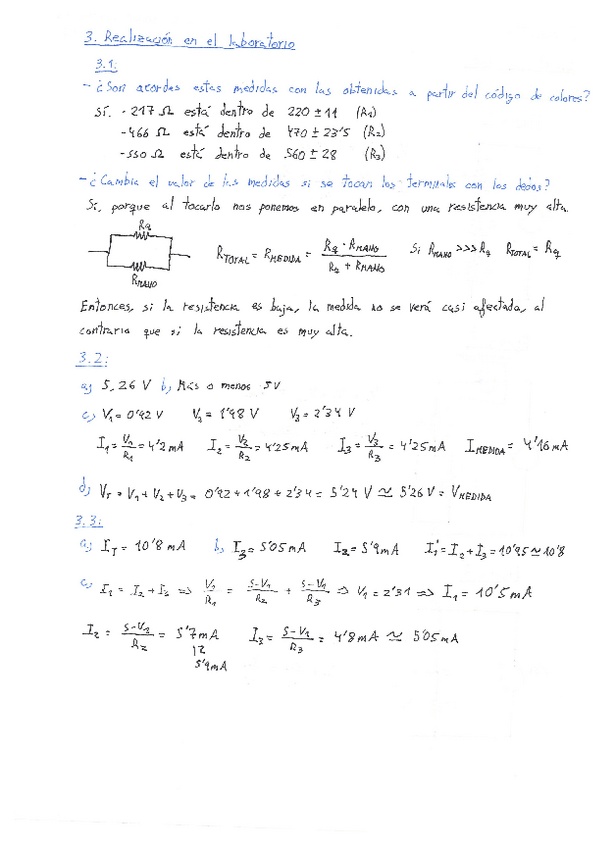 3. Realización en el laboratorio
3.1:
- ¿Son acordes estas medidas con las obtenidas a partir del código de colores?
Sí. - 217 Ω está dentro de 220 ± 11 (R₁)
- 466 Ω está dentro de 470 ± 23'5 (R₂)
- 550 Ω está dentro de 560 ± 28 (R₃)
- ¿Cambia el valor de las medidas si se tocan los terminales con los dedos?
Sí, porque al tocarlo nos ponemos en paralelo, con una resistencia muy alta.
R_TOTAL = R_MEDIDA = (R_q · R_MANO) / (R_q + R_MANO) Si R_MANO >>> R_q R_TOTAL = R_q
R_q
R_MANO
Entonces, si la resistencia es baja, la medida no se verá casi afectada, al
contrario que si la resistencia es muy alta.
3.2:
a) 5,26 V b) Más o menos 5V
c) V₁ = 0'92 V V₂ = 1'98 V V₃ = 2'34 V
I₁ = V₁/R₁ = 4'2 mA I₂ = V₂/R₂ = 4'25 mA I₃ = V₃/R₃ = 4'25 mA I_MEDIDA = 4'16 mA
d) V_T = V₁ + V₂ + V₃ = 0'92 + 1'98 + 2'34 = 5'24 V ≃ 5'26 V = V_MEDIDA
3.3:
a) I_T = 10'8 mA b) I₃ = 5'05 mA I₂ = 5'9 mA I₁ = I₂ + I₃ = 10'95 ≃ 10'8
c) I₁ = I₂ + I₃ ⇒ V₁/R₁ = (5-V₁)/R₂ + (5-V₁)/R₃ ⇒ V₁ = 2'31 ⇒ I₁ = 10'5 mA
I₂ = (5-V₁)/R₂ = 5'7 mA I₃ = (5-V₁)/R₃ = 4'8 mA ≃ 5'05 mA
≃
5'9 mA